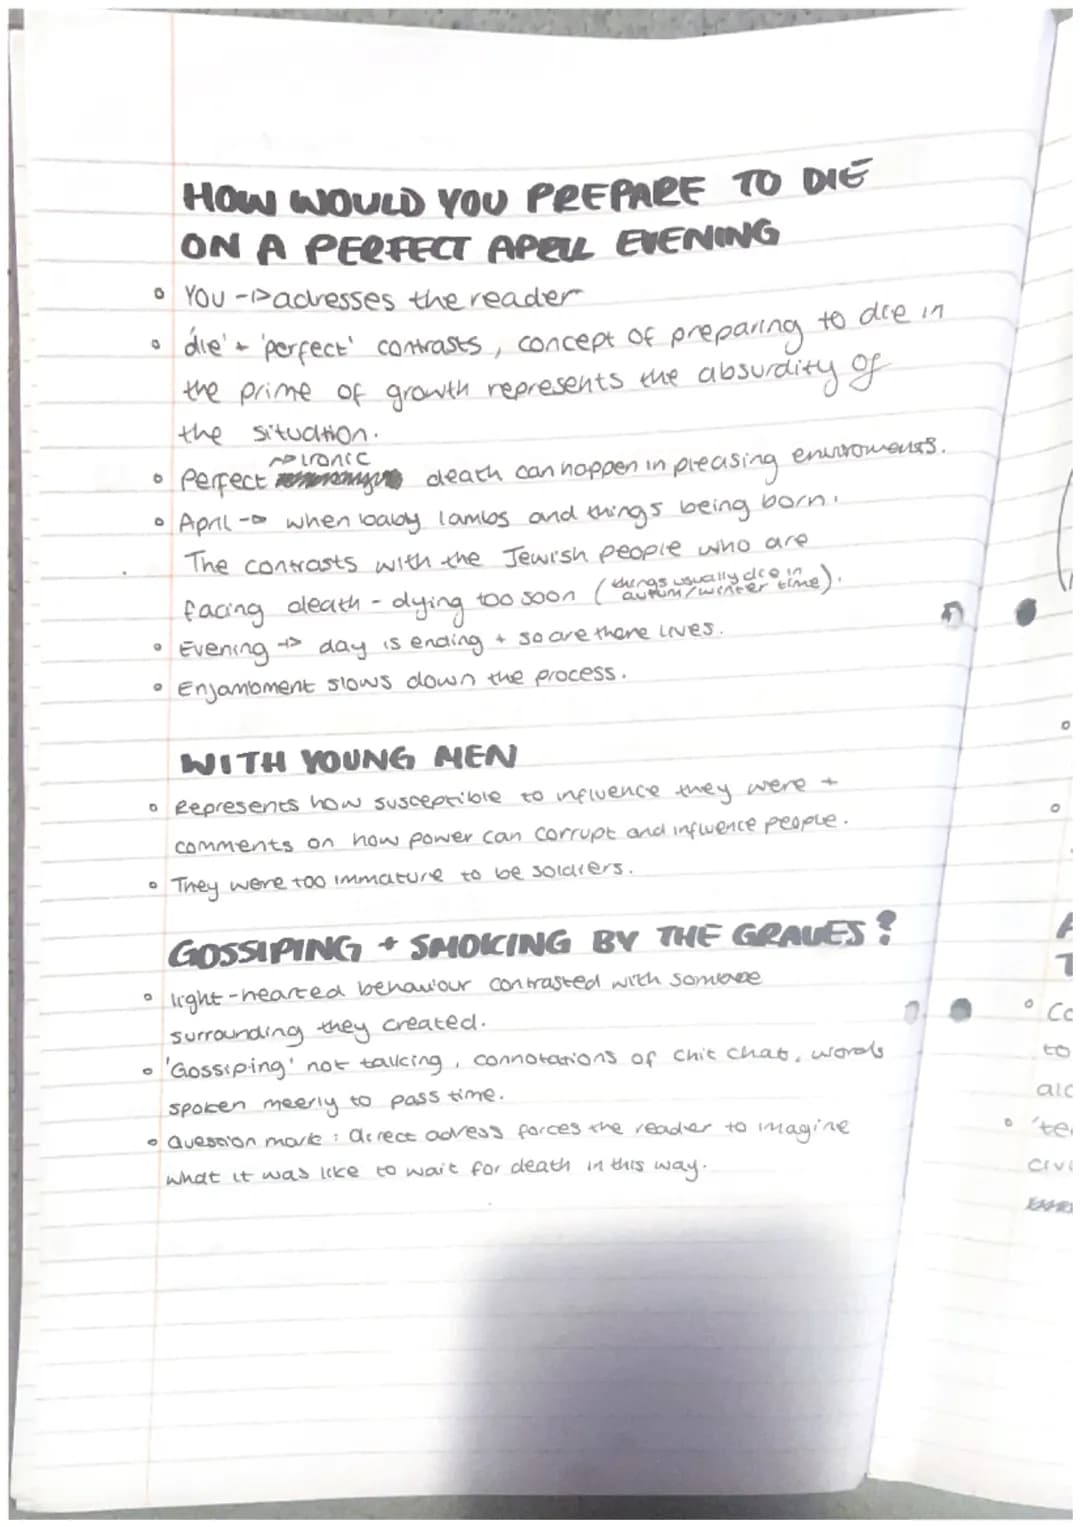 HOW WOULD YOU PREPARE TO DIE
ON A PERFECT APRIL EVENING
• YOU -> adresses the reader
• 'die' + 'perfect' contrasts, concept of preparing to die in
the prime of growth represents the absurdity of
the situation.
-> ironic
• Perfect death can happen in pleasing enviroments.
• April -> when baby lambs and things being born.
The contrasts with the Jewish people who are
facing death - dying too soon (things usually die in
autum/winter time).
• Evening -> day is ending + so are there lives.
• Enjambment slows down the process.
WITH YOUNG MEN
• Represents how susceptible to influence they were +
comments on how power can corrupt and influence people.
• They were too immature to be soldiers.
GOSSIPING + SMOKING BY THE GRAVES?
• light-hearted behaviour contrasted with
surrounding they created.
• 'Gossiping' not talking, connotations of chit chat, words
spoken meerly to pass time.
• Question mark: direct adress forces the reader to imagine
what it was like to wait for death in this way.
• Co
to
• 'te